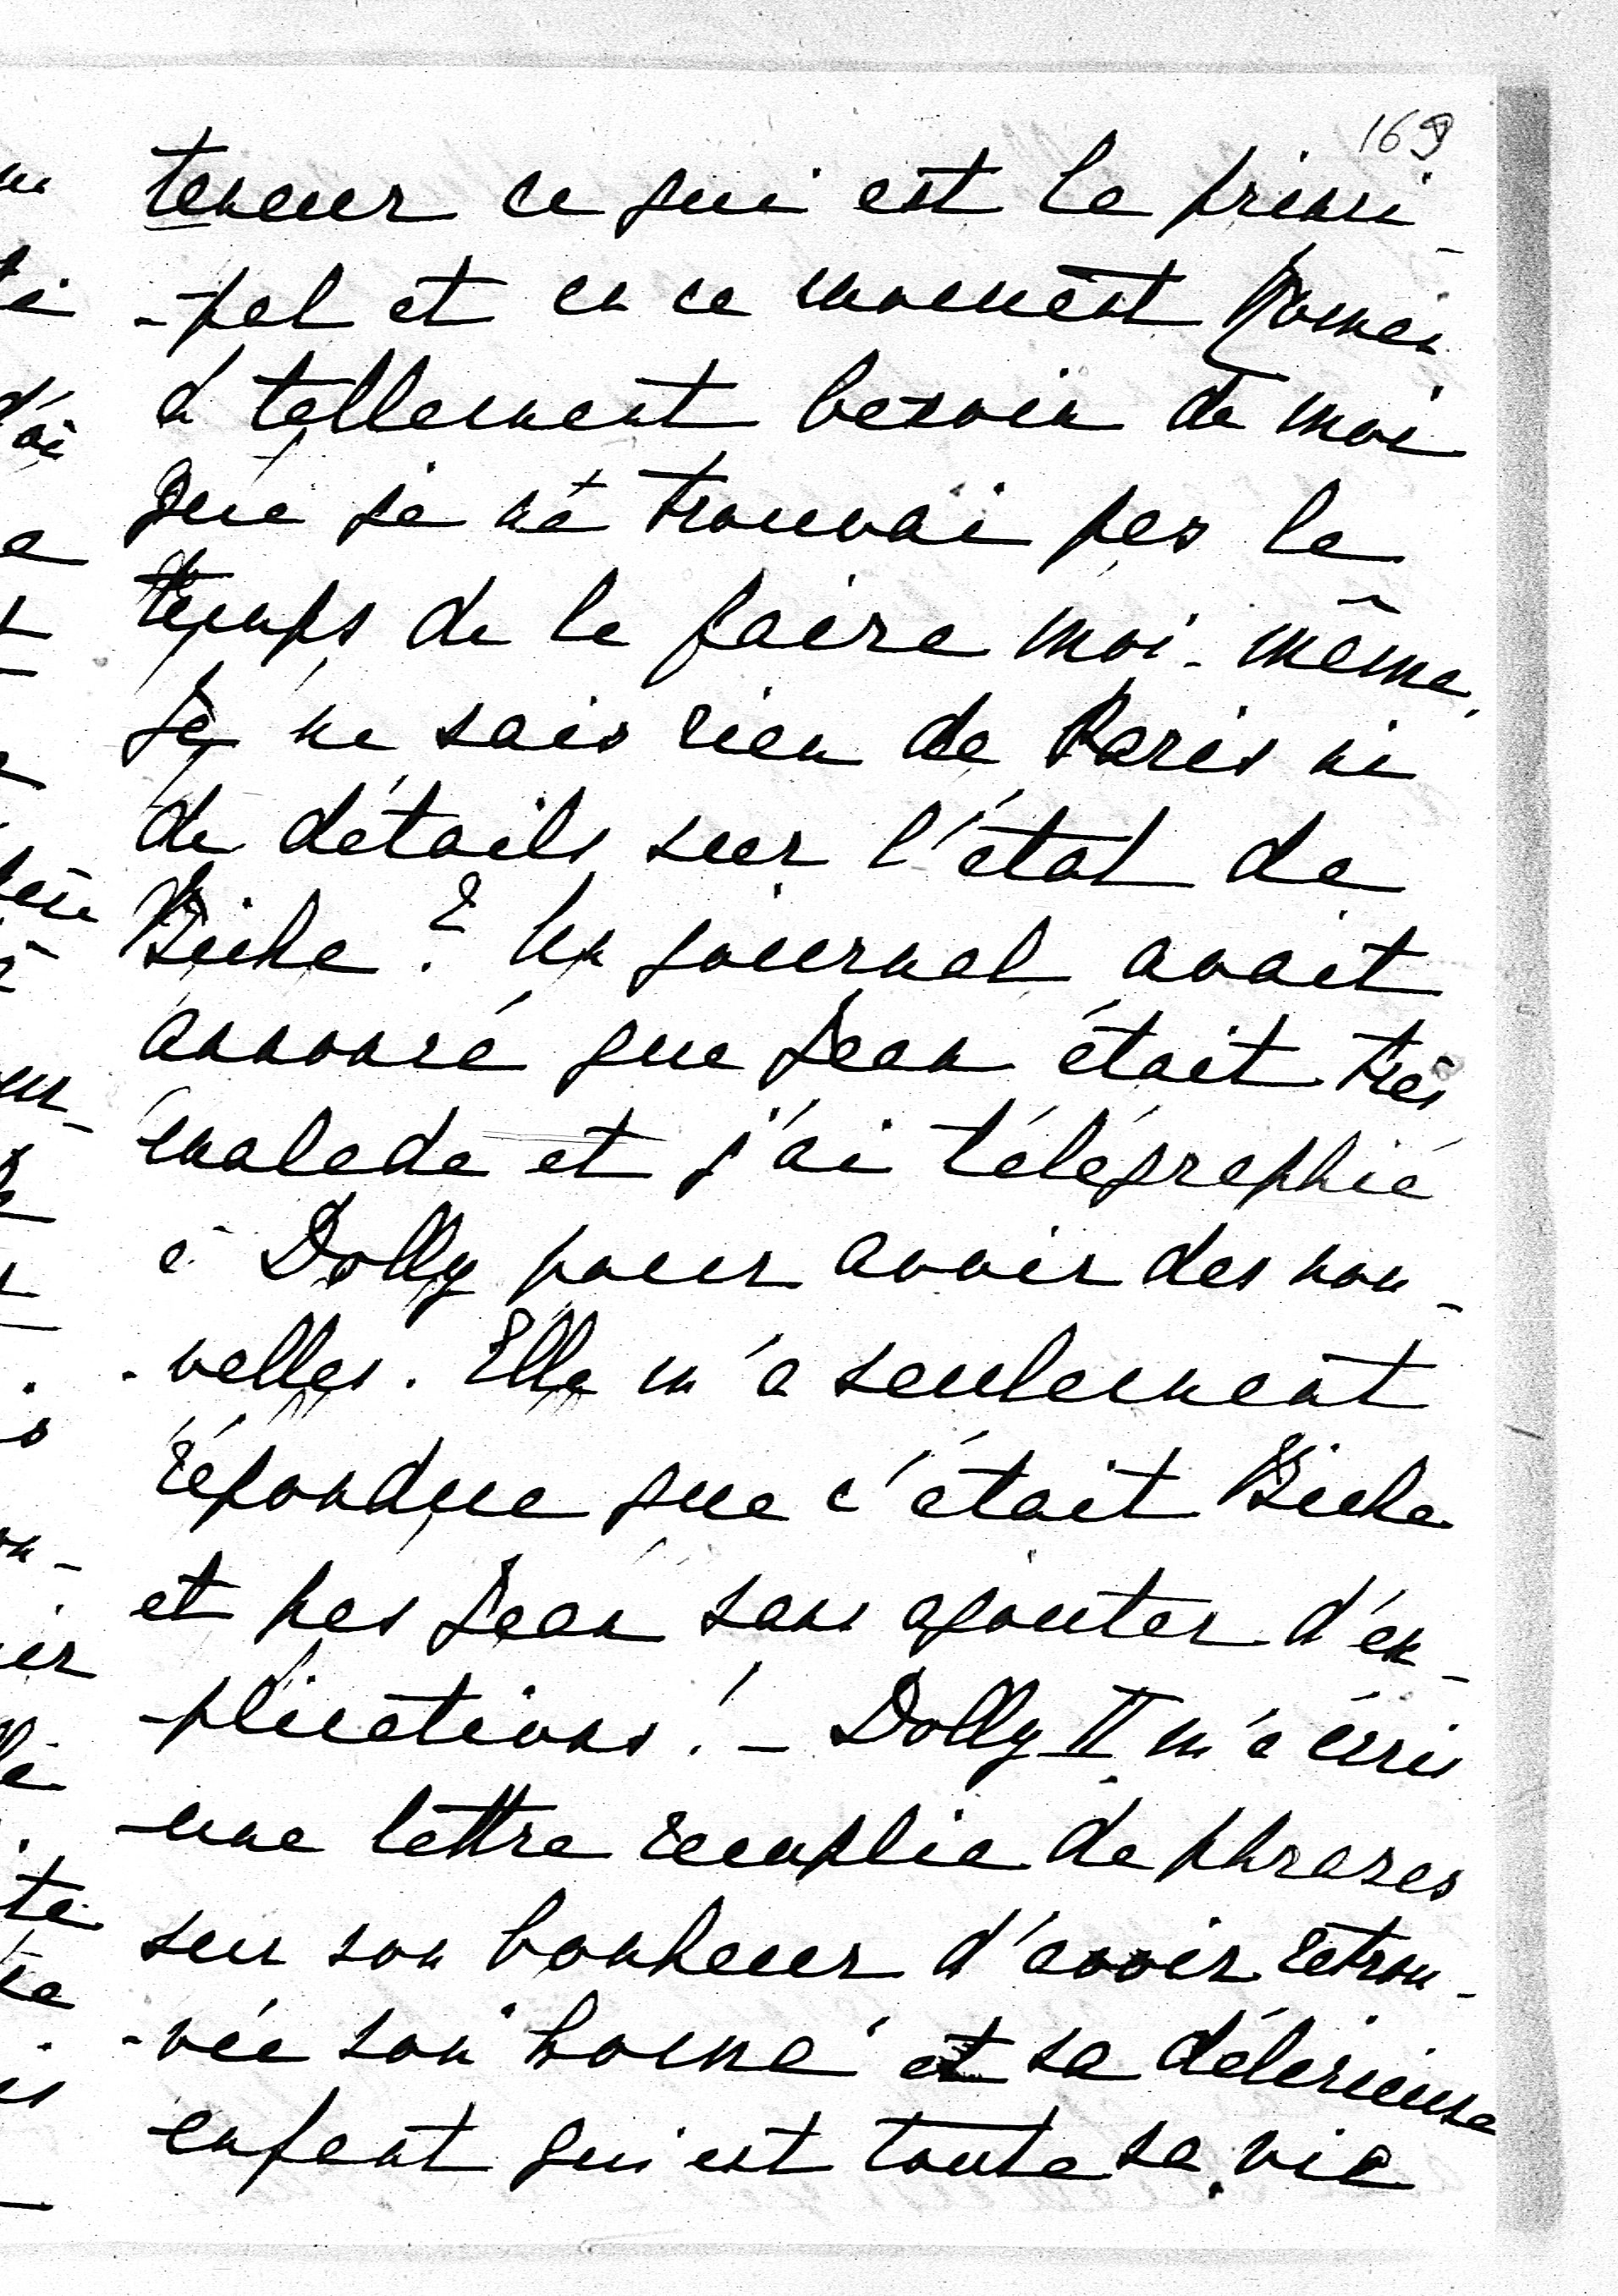 169
teneur ce qui est le princi-
-pal et en ce moment
a tellement besoin de moi
que je ne trouvai pas le
temps de le faire moi-même.
Je ne sais rien de Paris ni
de détails sur l'état de
Biche? Un journal avait
annoncé que Jean était très
malade et j'ai télégraphié
à Dolly pour avoir des nou-
-velles. Elle m'a seulement
répondue que c'était Biche
et pas Jean sans ajouter d'ex-
-plications! - Dolly II m'a écris
une lettre remplie de phrases
sur son bonheur d'avoir retrou-
-vée son "home" et sa délicieuse
enfant qui est toute sa vie